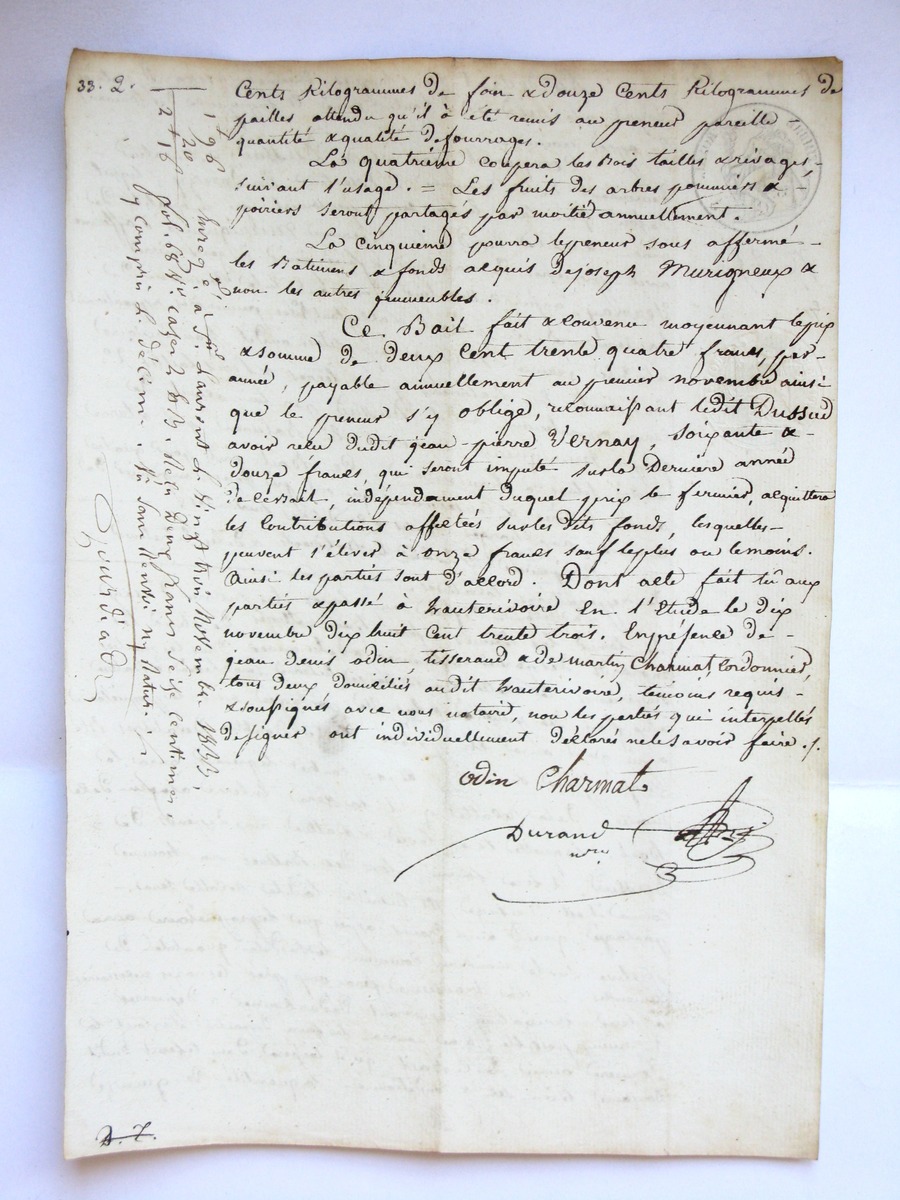 33. 2.
Cents Kilogrammes de foin & douze Cents Kilogrammes de
pailles attendu qu'il à été remis au preneur pareille
quantité & qualité de fourrages.
La quatrième coupera les Bois taillés & rivages,
suivant l'usage. = Les fruits des arbres pommiers &
poiriers seront partagés par moitié annuellement.
La cinquième pourra le preneur sous affermé
les Batimens & fonds acquis de joseph Murigneux &
non les autres immeubles.
Ce Bail fait & convenu moyennant le prix
& somme de deux cent trente quatre francs, par
année, payable annuellement au premier novembre ainsi
que le preneur s'y oblige, reconnaissant ledit Dussud
avoir reçu dudit jean-pierre Vernay, soixante &
douze francs, qui seront imputé sur la Dernière année
de ce Bail, indépendament duquel prix le fermier, acquittera
les Contributions affectées sur les dits fonds, lesquelles
peuvent s'élever à onze francs sauf le plus ou le moins.
Ainsi les parties sont d'accord. Dont acte fait lû aux
parties & passé à hauterivoire En l'Etude le dix
novembre dix huit cent trente trois. En présence de
jean denis odin, tisserand & de martin Charmat, Cordonnier,
tous deux domiciliés audit hauterivoire, témoins requis
& soussignés avec nous notaire, non les parties qui interpellés
de signer ont individuellement déclarés ne le savoir faire ./.
odin Charmat
Durand
nre
1 96
20
2 16
Enreg.é à St. Laurent le vingt trois Novembre 1833,
fol. 68 Vo. case 2 &3. Reçu Deux francs seize centimes
y compris le décime.
D. 7.